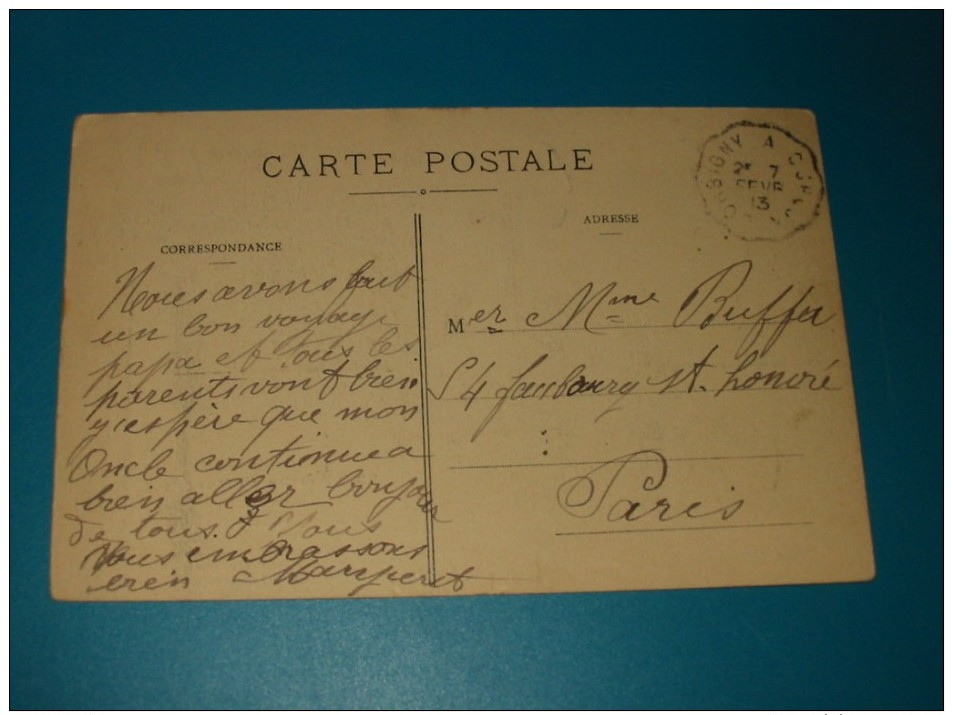 CARTE POSTALE
CORRESPONDANCE
ADRESSE
Nous avons fait
un bon voyage
papa et tous les
parents vont bien
j'espère que mon
Oncle continue a
bien aller bonjour
de tous. Nous
Vous embrassons
bien
Mer Mme
54 faubourg st. honoré
Paris
ORBIGNY A
2E 7
FEVR
13